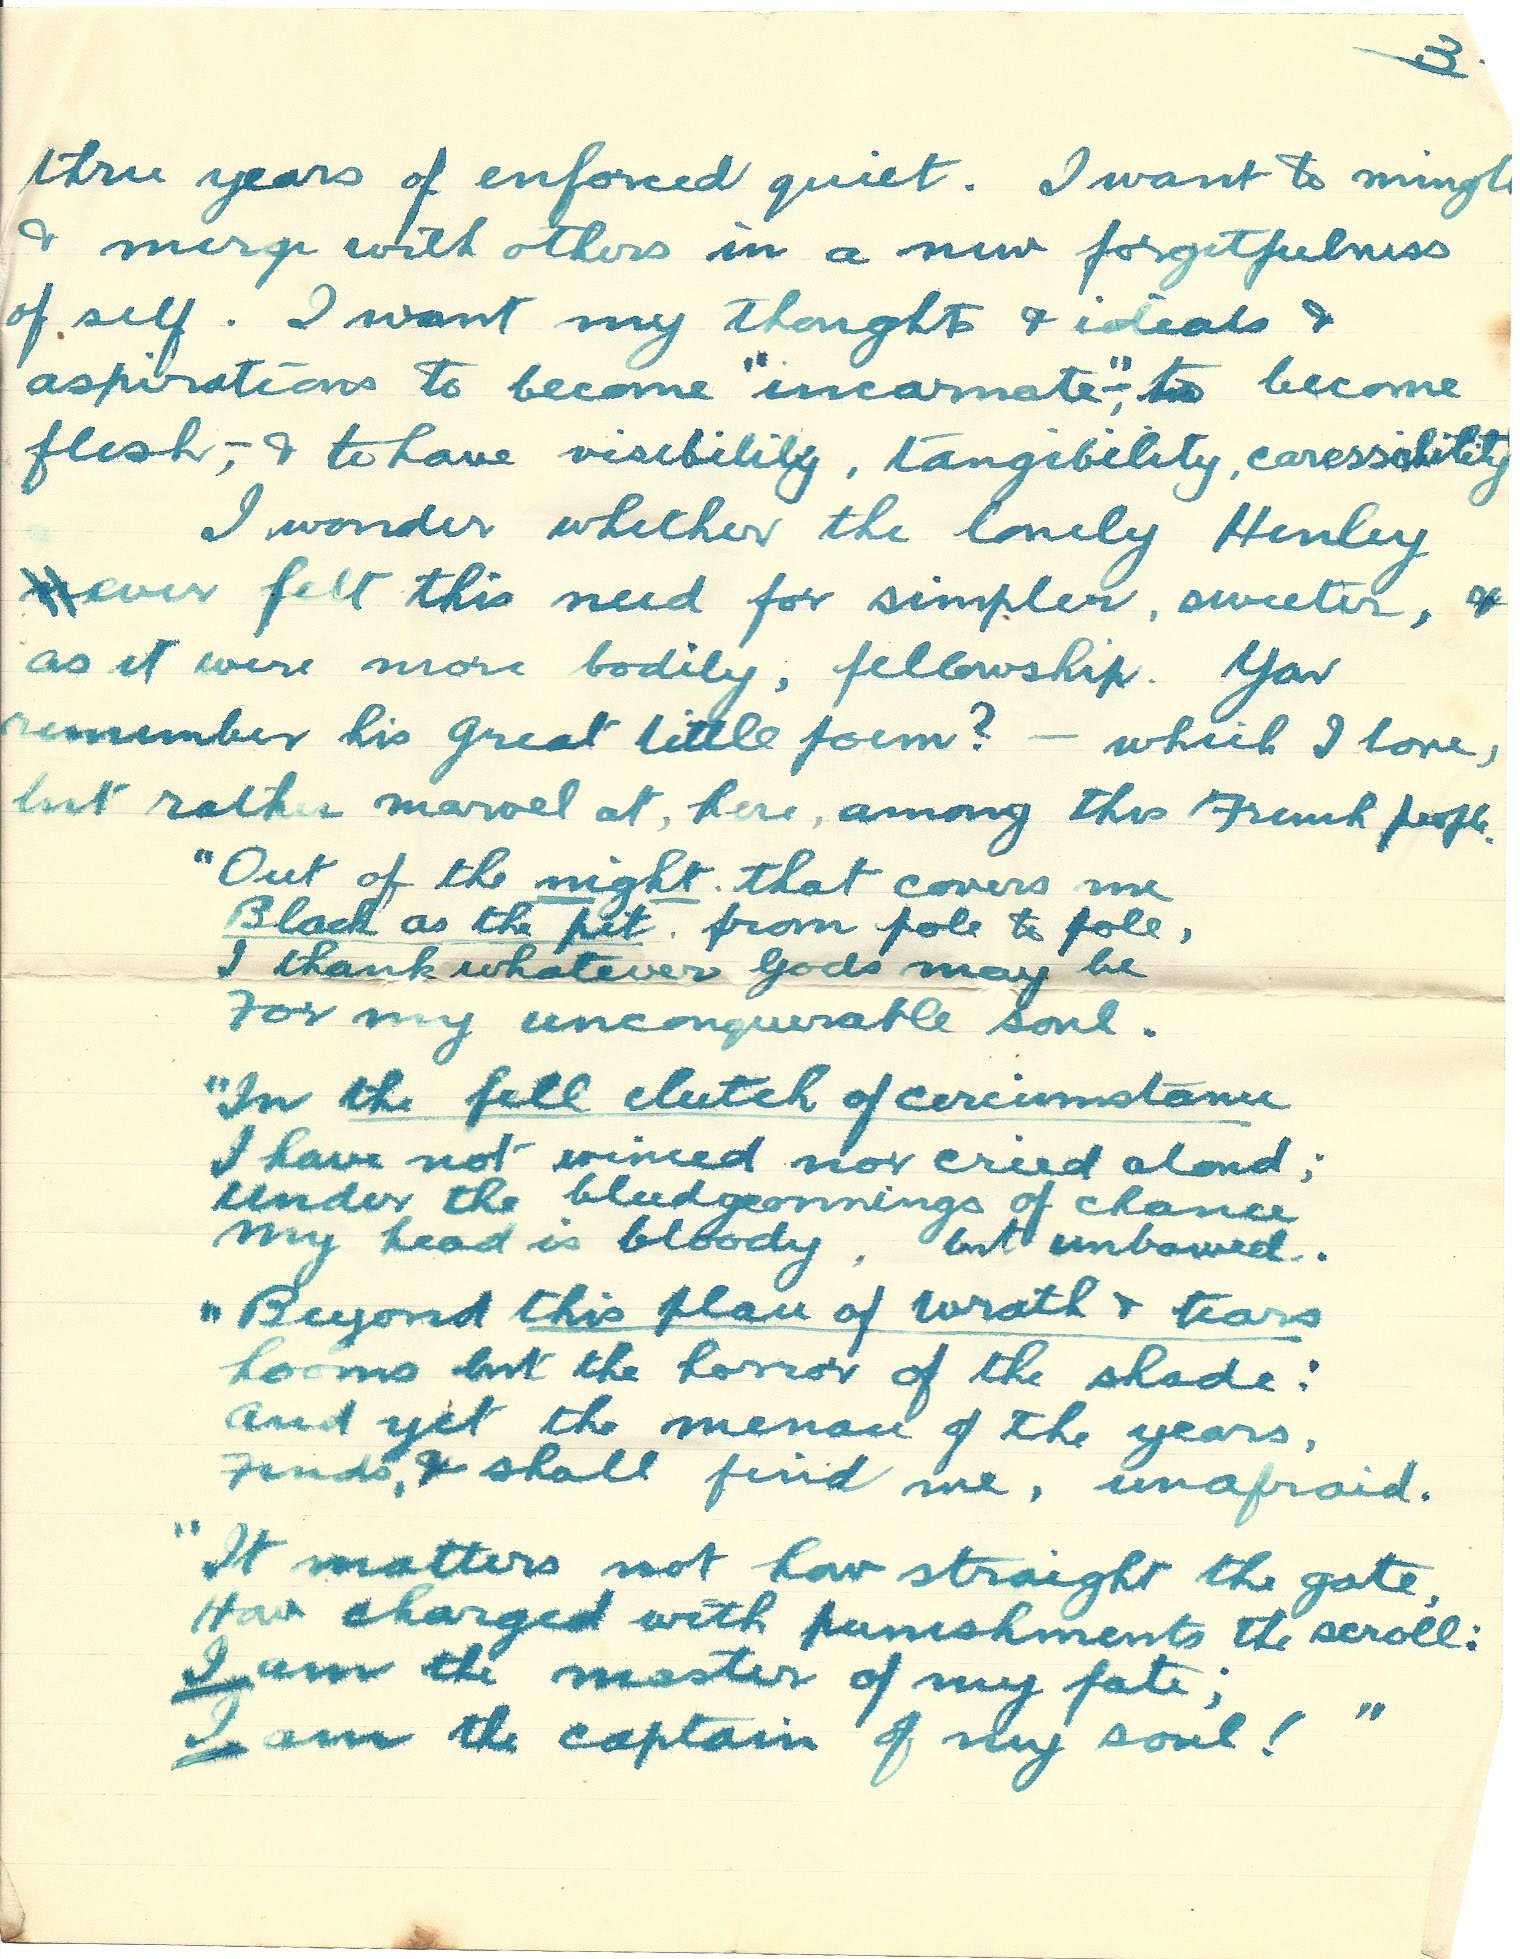 3.
three years of enforced quiet. I want to mingle
& merge with others in a new forgetfulness
of self. I want my thoughts & ideals &
aspirations to become "incarnate"-, to become
flesh,- & to have visibility, tangibility, caressibility
I wonder whether the lonely Henley
ever felt this need for simpler, sweeter, &
as it were more bodily, fellowship. You
remember his great little poem? - which I love,
but rather marvel at, here, among this French people.
"Out of the night that covers me
Black as the pit from pole to pole,
I thank whatever Gods may be
For my unconquerable soul.
"In the fell clutch of circumstance
I have not winced nor cried aloud;
Under the bludgeonnings of chance
My head is bloody, but unbowed.
"Beyond this place of wrath & tears
Looms but the horror of the shade:
And yet the menace of the years,
Finds, & shall find me, unafraid.
"It matters not how straight the gate,
How charged with punishments the scroll:
I am the master of my fate;
I am the captain of my soul! "